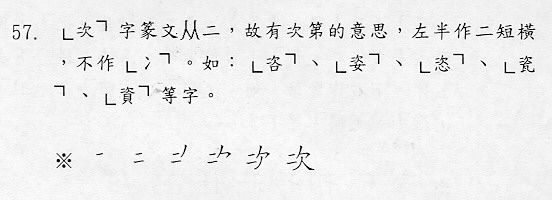 57. 「次」字篆文从二，故有次第的意思，左半作二短橫
，不作「冫」。如：「咨」、「姿」、「恣」、「瓷
」、「資」等字。
※ 次